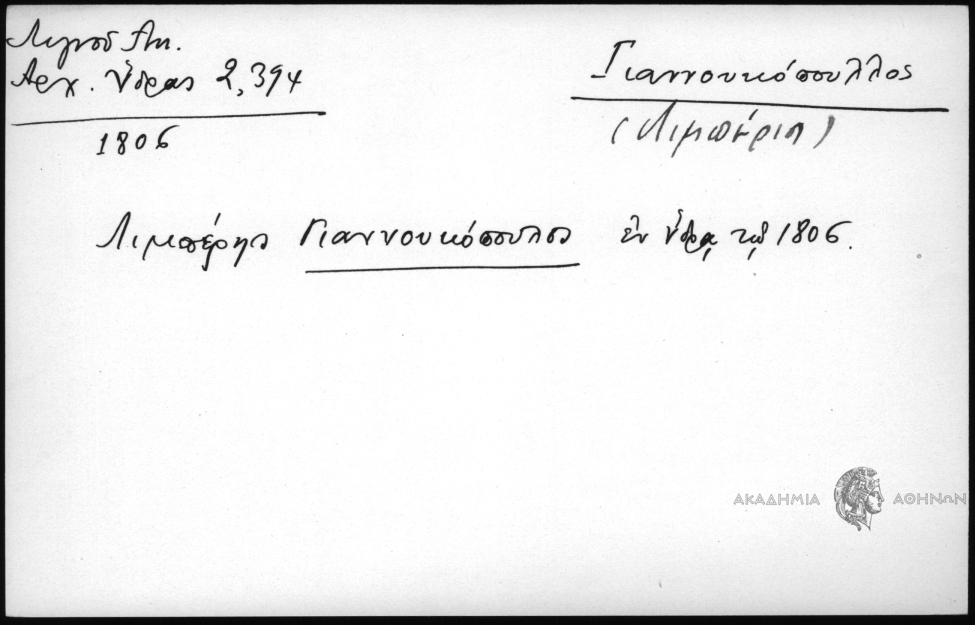 Λιγνοῦ Ἀν.
Ἀρχ. Ὕδρας 2,394
1806
Γιαννουκόπουλλος
(Λιμπέρης)
Λιμπέρης Γιαννουκόπουλος ἐν Ὕδρᾳ τῷ 1806.
ΑΚΑΔΗΜΙΑ ΑΘΗΝΩΝ